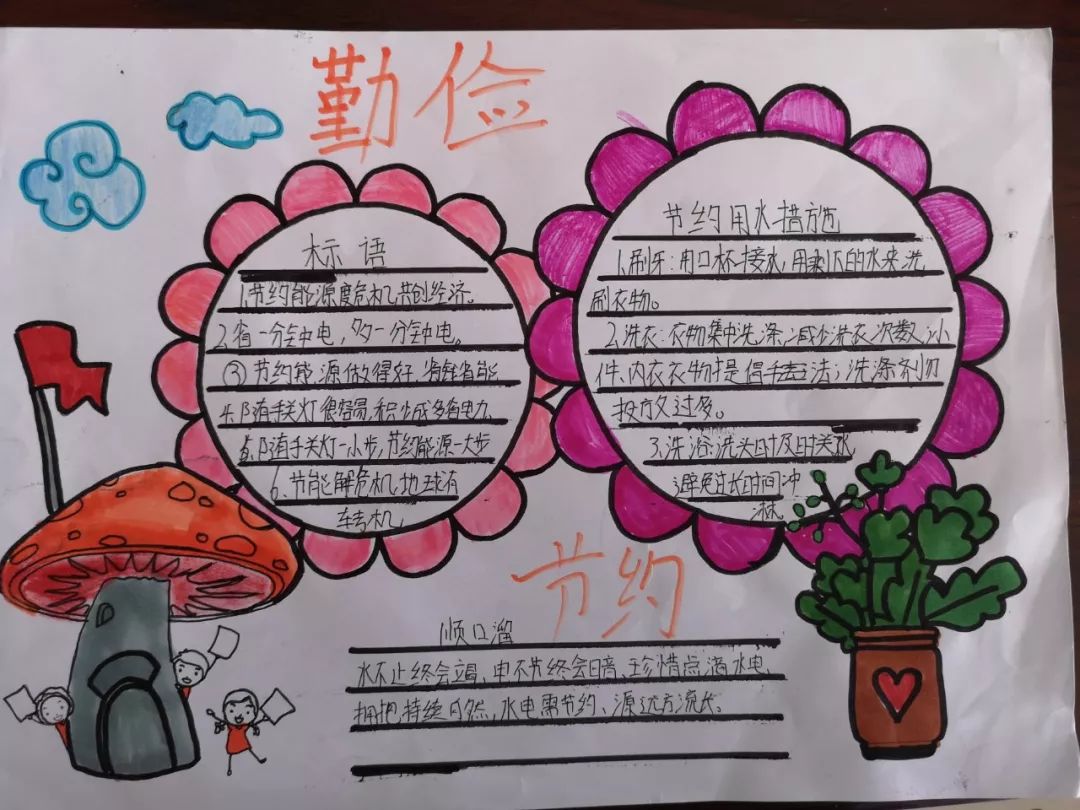 勤俭
标语
1.节约能源度危机,共创经济。
2.省一分钟电,多一分钟电。
③节约能源做得好,省钱省能
4.随手关灯很容易,积少成多省电力
5.随手关灯一小步,节约能源一大步
6、节能解危机,地球有
转机
节约用水措施
1.刷牙:用口杯接水,用剩下的水来洗
刷衣物。
2.洗衣:衣物集中洗涤,减少洗衣次数,小
件、内衣衣物提倡手法;洗涤剂勿
投放过多。
3.洗浴:洗头时及时关水
避免过长时间冲
淋
节约
顺口溜
水不止终会竭、电不节终会暗、珍惜点滴水电,
拥抱持续自然,水电需节约、源远方流长。